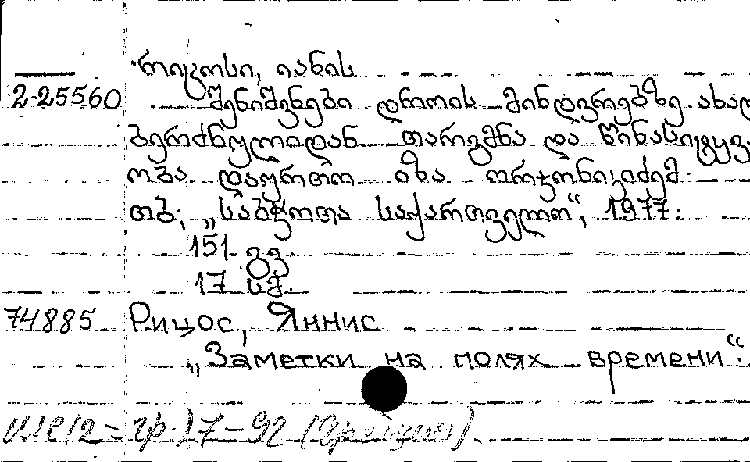 რიცოსი, იანის
2-25560 შენიშვნები დროის მინდვრებზე. ახალ
ბერძნულიდან თარგმნა და წინასიტყვ.
ობა დაურთო იზა ორჯონიკიძემ.
თბ., „საბჭოთა საქართველო“, 1977.
151 გვ
17 სმ.
74885 Рицос, Яннис
„Заметки на полях времени“.